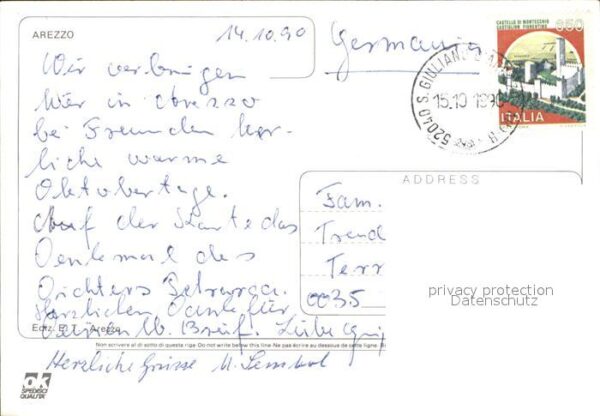 AREZZO
14.10.90
Germania
CASTELLO DI MONTECCHIO
CASTIGLION FIORENTINO
650
ITALIA
52040 S. GIULIANO
15.10.1990
Wir verbringen
hier in Arezzo
bei Freunden herr-
liche warme
Oktobertage.
Auf der Karte das
Denkmal des
Dichters Petrarca.
Herzlichen Dank für
lb. Brief. Liebe
Herzliche Grüsse M.
ADDRESS
Fam.
Trend
Terr
0035
privacy protection
Datenschutz
Ediz. Arezzo
Non scrivere al di sotto di questa riga Do not write below this line Ne pas écrire au dessous de cette ligne
ok
SPEDISCI
QUALITÀ